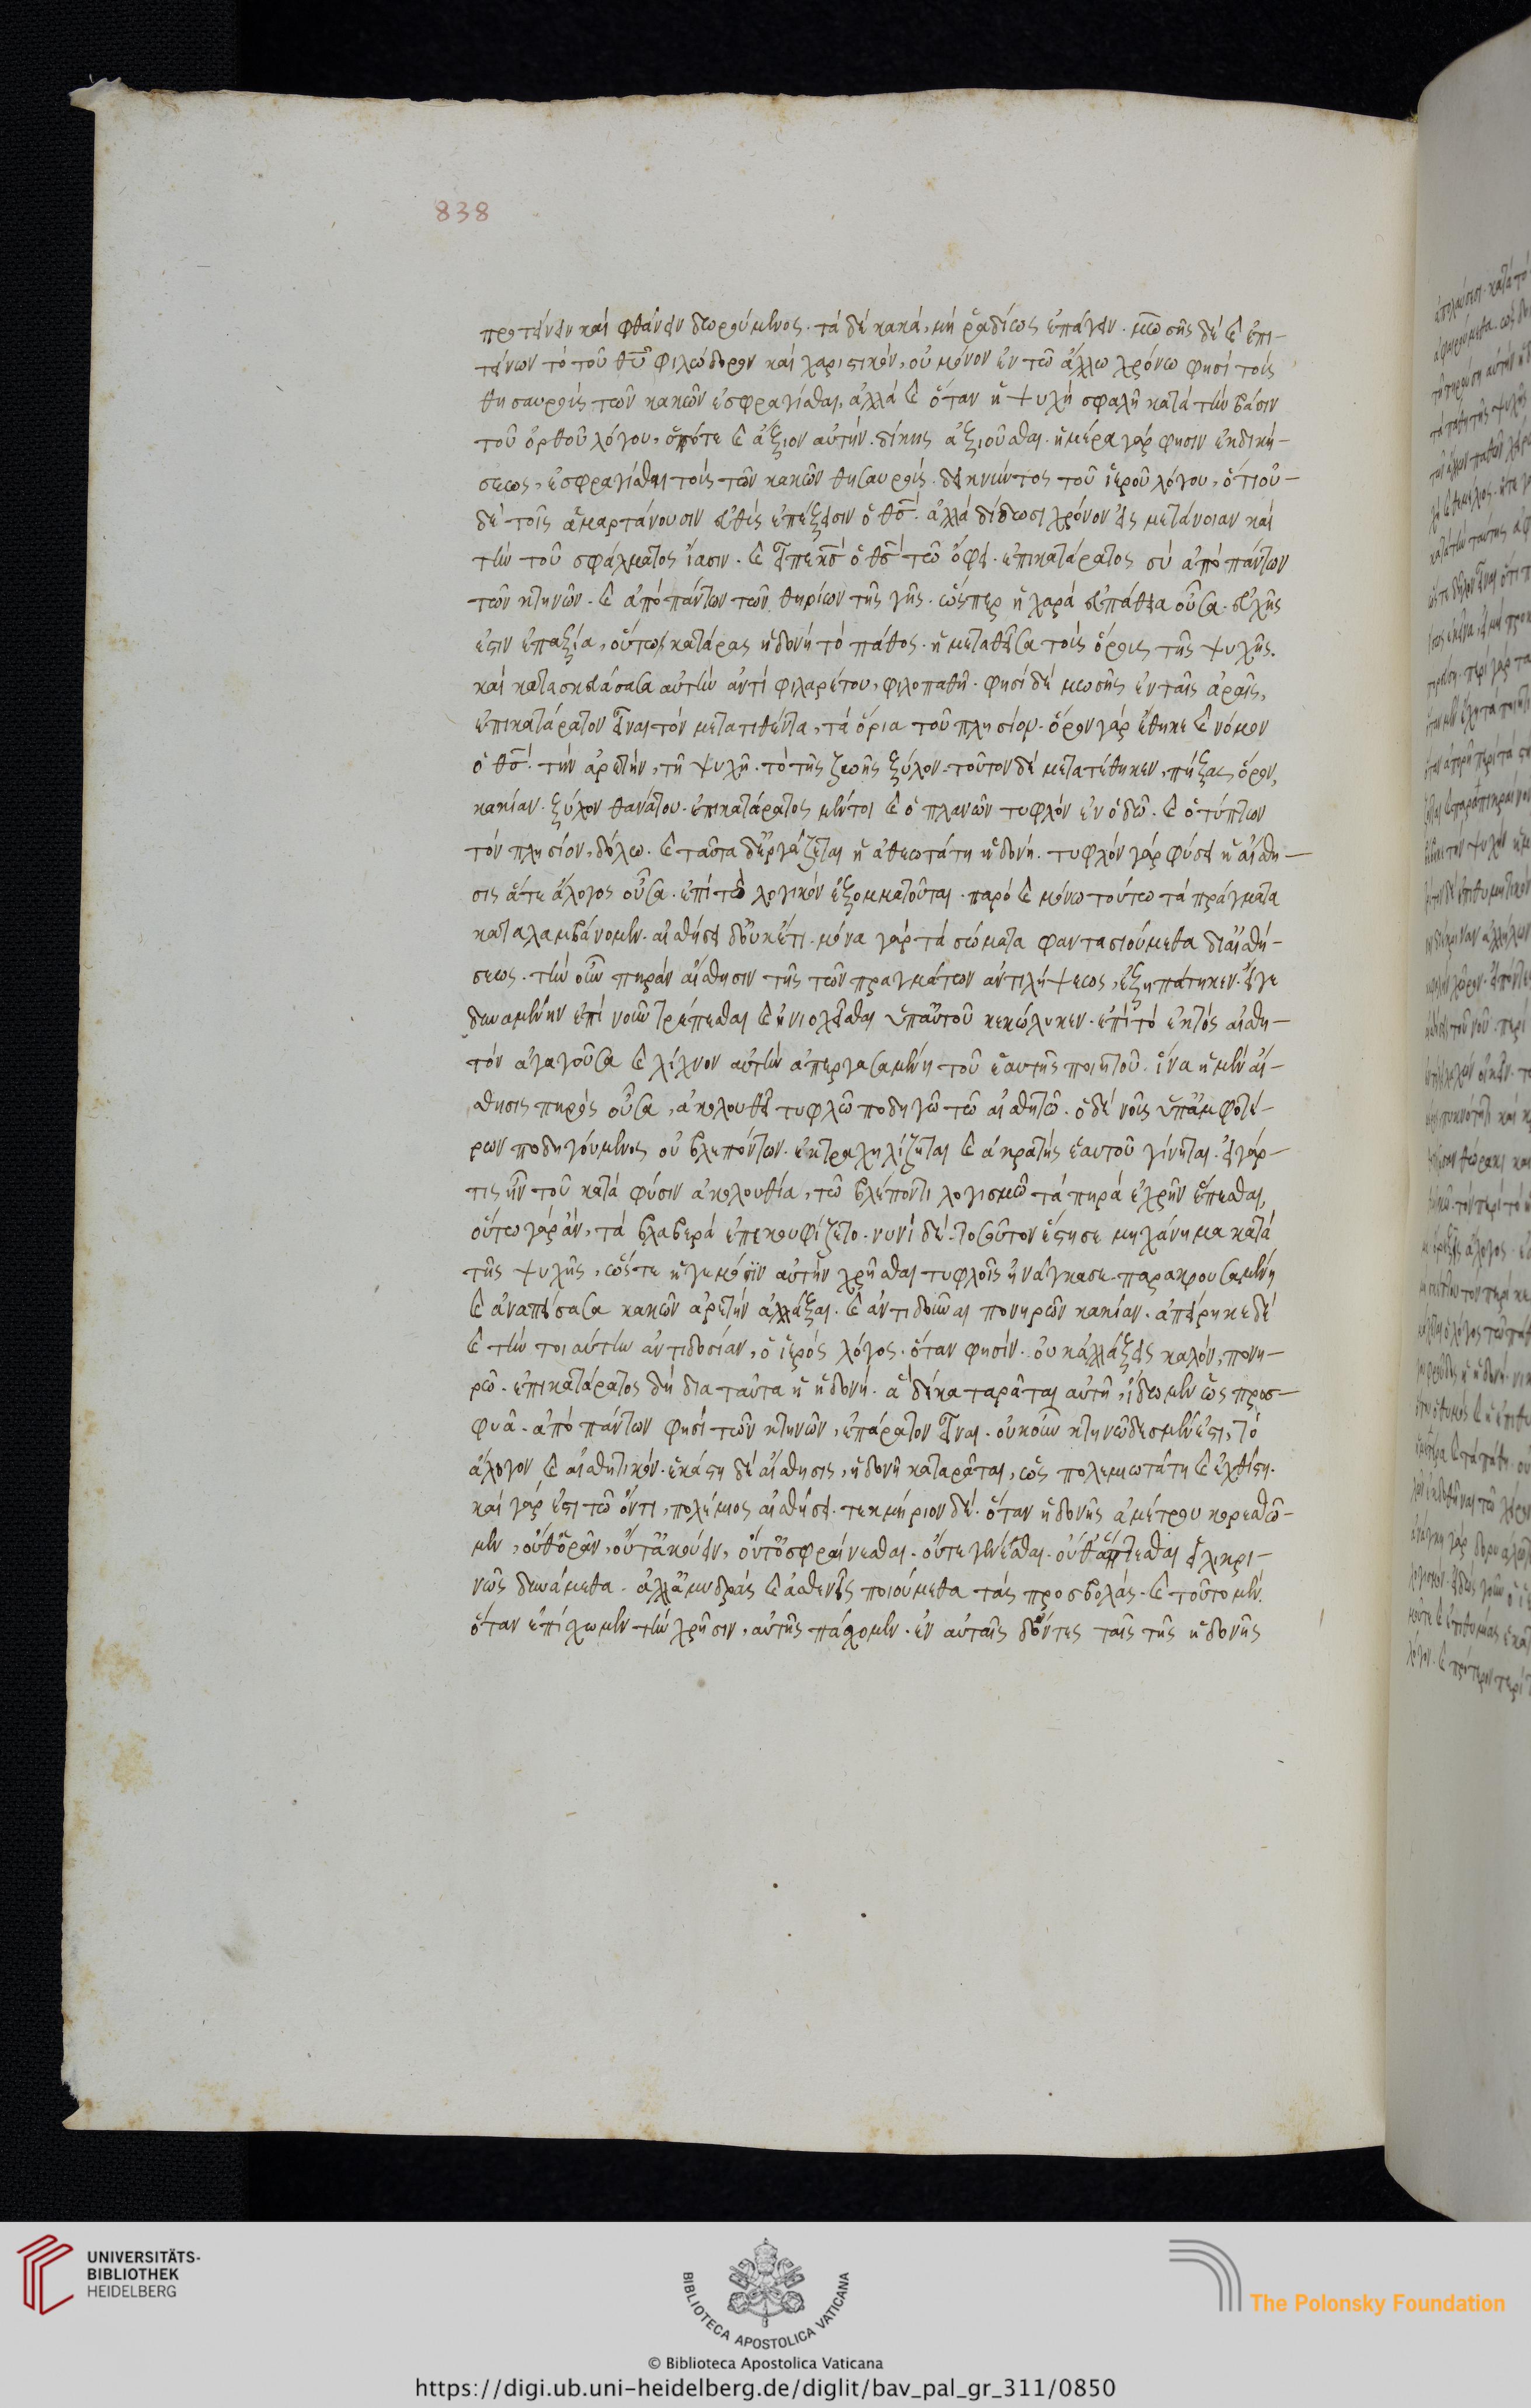 838
προτείνειν καὶ φθάνειν δωρούμενος· τὰ δὲ κακὰ, μὴ ῥαδίως ἐπάγειν. μωσῆς δὲ καὶ ἐπι-
τείνων τὸ τοῦ θυ φιλόδωρον καὶ χαριστικόν, οὐ μόνον ἐν τῶ ἄλλω χρόνω φησὶ τοὺς
θησαυροὺς τῶν κακῶν ἐσφραγίσθαι, ἀλλὰ καὶ ὅταν ἡ ψυχὴ σφαλῆ κατὰ τὴν βάσιν
τοῦ ὀρθοῦ λόγου, ὁπότε καὶ ἄξιον αὐτὴν δίκης ἀξιοῦσθαι. ἡμέρα γάρ φησιν ἐκδική-
σεως, ἐσφραγίσθαι τοὺς τῶν κακῶν θησαυρούς. δεικνύντος τοῦ ἱεροῦ λόγου, ὅτι οὐ-
δὲ τοῖς ἁμαρτάνουσιν εὐθὺς ἐπέξεισιν ὁ θσ. ἀλλὰ δίδωσι χρόνον εἰς μετάνοιαν καὶ
τὴν τοῦ σφάλματος ἴασιν. καὶ εἶπε κσ ὁ θσ τῶ ὄφει. ἐπικατάρατος σὺ ἀπὸ πάντων
τῶν κτηνῶν. καὶ ἀπὸ πάντων τῶν θηρίων τῆς γῆς. ὥσπερ ἡ χαρὰ εὐπάθεια οὖσα. εὐχῆς
ἐστιν ἐπαξία, οὕτως κατάρας ἡδονὴ τὸ πάθος. ἡ μεταθεῖσα τοὺς ὅρους τῆς ψυχῆς.
καὶ κατασκευάσασα αὐτὴν ἀντὶ φιλαρέτου, φιλοπαθῆ. φησὶ δὲ μωσῆς ἐν ταῖς ἀραῖς,
ἐπικατάρατον εἶναι τὸν μετατιθέντα, τὰ ὅρια τοῦ πλησίον. ὅρον γὰρ ἔθηκε καὶ νόμον
ὁ θσ. τὴν ἀρετὴν, τῆ ψυχῆ. τὸ τῆς ζωῆς ξύλον. τοῦτον δὲ μετατέθηκεν, πήξας ὅρον,
κακίαν. ξύλον θανάτου. ἐπικατάρατος μέντοι καὶ ὁ πλανῶν τυφλὸν ἐν ὁδῶ. καὶ ὁ τύπτων
τὸν πλησίον, δόλω. καὶ ταῦτα δ' ἐργάζεται ἡ ἀθεωτάτη ἡδονή. τυφλὸν γὰρ φύσει ἡ αἴσθη-
σις ἅτε ἄλογος οὖσα. ἐπεὶ τὸ λογικὸν ἐξομματοῦται. παρὸ καὶ μόνω τούτω τὰ πράγματα
καταλαμβάνομεν. αἰσθήσει δ' οὐκέτι. μόνα γὰρ τὰ σώματα φαντασιούμεθα δι' αἰσθή-
σεως. τὴν οὖν πηρὰν αἴσθησιν τῆς τῶν πραγμάτων ἀντιλήψεως, ἐξηπάτηκεν. εἴγε
δυναμένην ἐπὶ νοῦν τρέπεσθαι καὶ ἡνιοχεῖσθαι ὑπ' αὐτοῦ κεκώλυκεν. ἐπὶ τὸ ἐκτὸς αἰσθη-
τὸν ἀγαγοῦσα καὶ λίχνον αὐτὴν ἀπεργασαμένη τοῦ ἑαυτῆς ποιητοῦ. ἵνα ἡ μὲν αἴ-
σθησις πηρὸς οὖσα, ἀκολουθεῖ τυφλῶ ποδηγῶ τῶ αἰσθητῶ. ὁ δὲ νοῦς ὑπ' ἀμφοτέ-
ρων ποδηγούμενος οὐ βλεπόντων. ἐκτραχηλίζηται καὶ ἀκρατὴς ἑαυτοῦ γίνηται. εἰ γάρ-
τις ἦν τοῦ κατὰ φύσιν ἀκολουθία, τῶ βλέποντι λογισμῶ τὰ πηρὰ ἐχρῆν ἕπεσθαι,
οὕτω γὰρ ἂν, τὰ βλαβερὰ ἐπεκουφίζετο. νυνὶ δὲ τοσοῦτον ἔστησε μηχάνημα κατὰ
τῆς ψυχῆς, ὥστε ἡγεμόσιν αὐτὴν χρῆσθαι τυφλοῖς ἠνάγκασε παρακρουσαμένη
καὶ ἀναπείσασα κακῶν ἀρετὴν ἀλλάξαι. καὶ ἀντιδοῦναι πονηρῶν κακίαν. ἀπείρηκε δὲ
καὶ τὴν τοιαύτην ἀντιδοσίαν, ὁ ἱερὸς λόγος. ὅταν φησίν. οὐκ ἀλλάξεις καλόν, πονη-
ρῶ. ἐπικατάρατος δὴ διὰ ταῦτα ἡ ἡδονή. ἃ δὲ καταρᾶται αὐτῆ, ἴδωμεν ὡς προσ-
φυᾶ. ἀπὸ πάντων φησὶ τῶν κτηνῶν, ἐπάρατον εἶναι. οὐκοῦν κτηνῶδες μέν ἐστι, τὸ
ἄλογον καὶ αἰσθητικόν. ἑκάστη δὲ αἴσθησις, ἡδονῆ καταρᾶται, ὡς πολεμιωτάτη καὶ ἐχθίστη.
καὶ γάρ ἐστι τῶ ὄντι, πολέμιος αἰσθήσει. τεκμήριον δέ. ὅταν ἡδονῆς ἀμέτρου κορεσθῶ-
μεν, οὔθ' ὁρᾶν, οὔτ' ἀκούειν, οὔτ' ὀσφραίνεσθαι. οὔτε γεύεσθαι. οὔθ' ἅπτεσθαι εἰλικρι-
νῶς δυνάμεθα. ἀλλ' ἀμυδρὰς καὶ ἀσθενεῖς ποιούμεθα τὰς προσβολάς. καὶ τοῦτο μὲν.
ὅταν ἐπίσχωμεν τὴν χρῆσιν, αὐτῆς πάσχομεν. ἐν αὐταῖς δ' ὄντες ταῖς τῆς ἡδονῆς
UNIVERSITÄTS-
BIBLIOTHEK
HEIDELBERG
BIBLIOTECA APOSTOLICA VATICANA
The Polonsky Foundation
© Biblioteca Apostolica Vaticana
https://digi.ub.uni-heidelberg.de/diglit/bav_pal_gr_311/0850